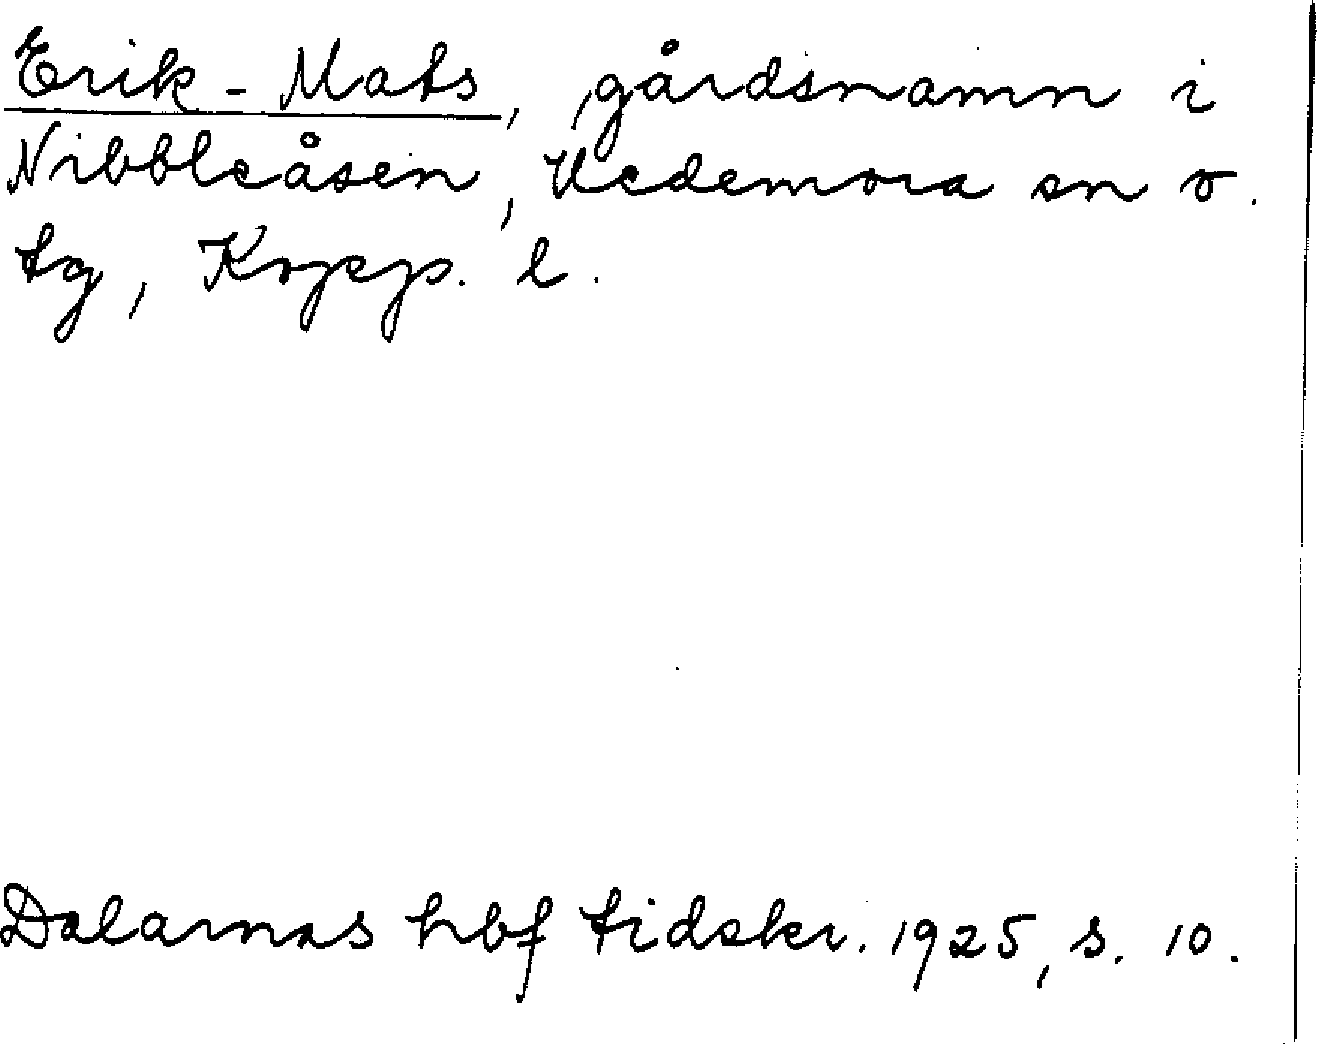 Erik-Mats, gårdsnamn i
Nibbleåsen, Hedemora sn o.
tg, Kopp. l.
Dalarnas hbf tidskr. 1925, s. 10.